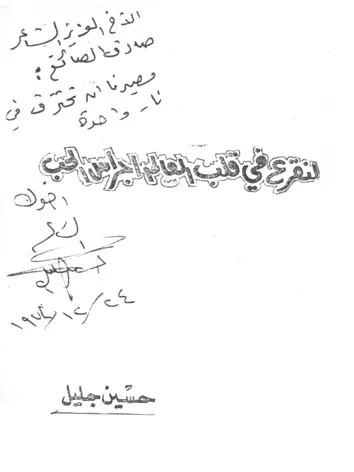 الأخ العزيز الشاعر
صادق الصائغ:
مصيرنا أن نحترق في
نار واحدة
لنقرع في قلب العالم أجراس الحب
أخوك
١٩٧٤/١٢/٢٤
حسين جليل